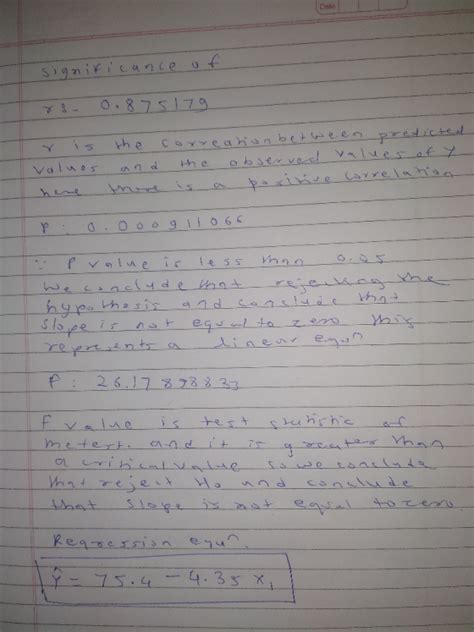 Date
significance of
rs- 0.875179
r is the correation between predicted
values and the observed values of Y
here there is a positive correlation
P: 0.000911066
∵ P value is less than 0.05
we conclude that rejecting the
hypothesis and conclude that
slope is not equal to zero this
represents a linear equn
F: 26.17898833
F value is test statistic of
and it is greater than
a critical value so we conclude
that reject H0 and conclude
that slope is not equal to zero.
Regression equn.
Ŷ = 75.4 - 4.35 X1